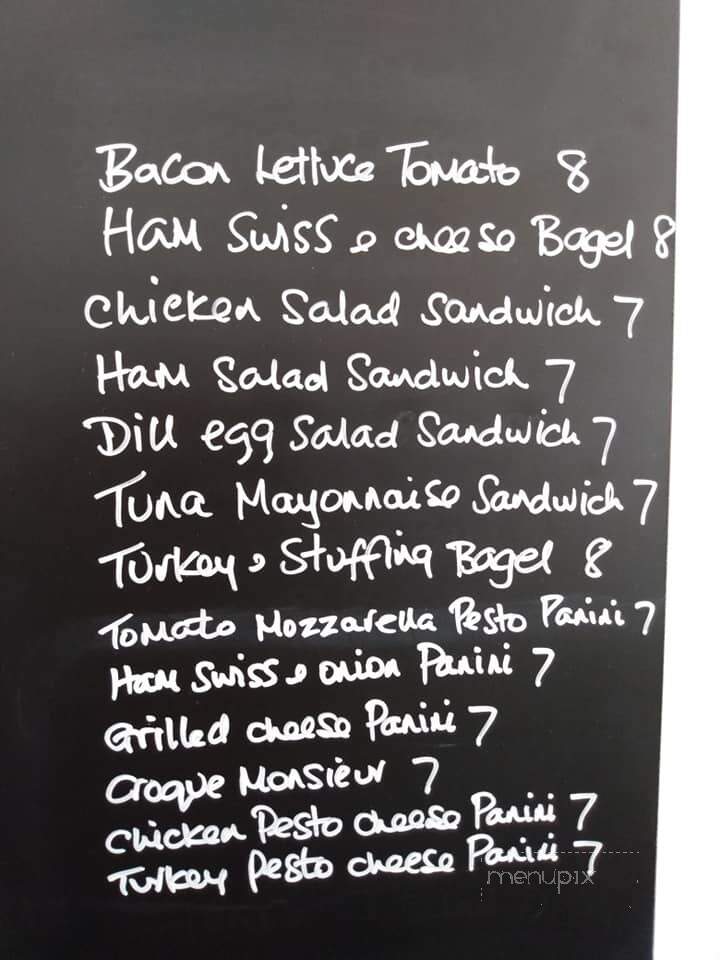 Bacon Lettuce Tomato 8
Ham Swiss & cheese Bagel 8
Chicken Salad Sandwich 7
Ham Salad Sandwich 7
Dill egg Salad Sandwich 7
Tuna Mayonnaise Sandwich 7
Turkey & Stuffing Bagel 8
Tomato Mozzarella Pesto Panini 7
Ham Swiss & onion Panini 7
Grilled cheese Panini 7
Croque Monsieur 7
Chicken Pesto cheese Panini 7
Turkey Pesto cheese Panini 7
menupix